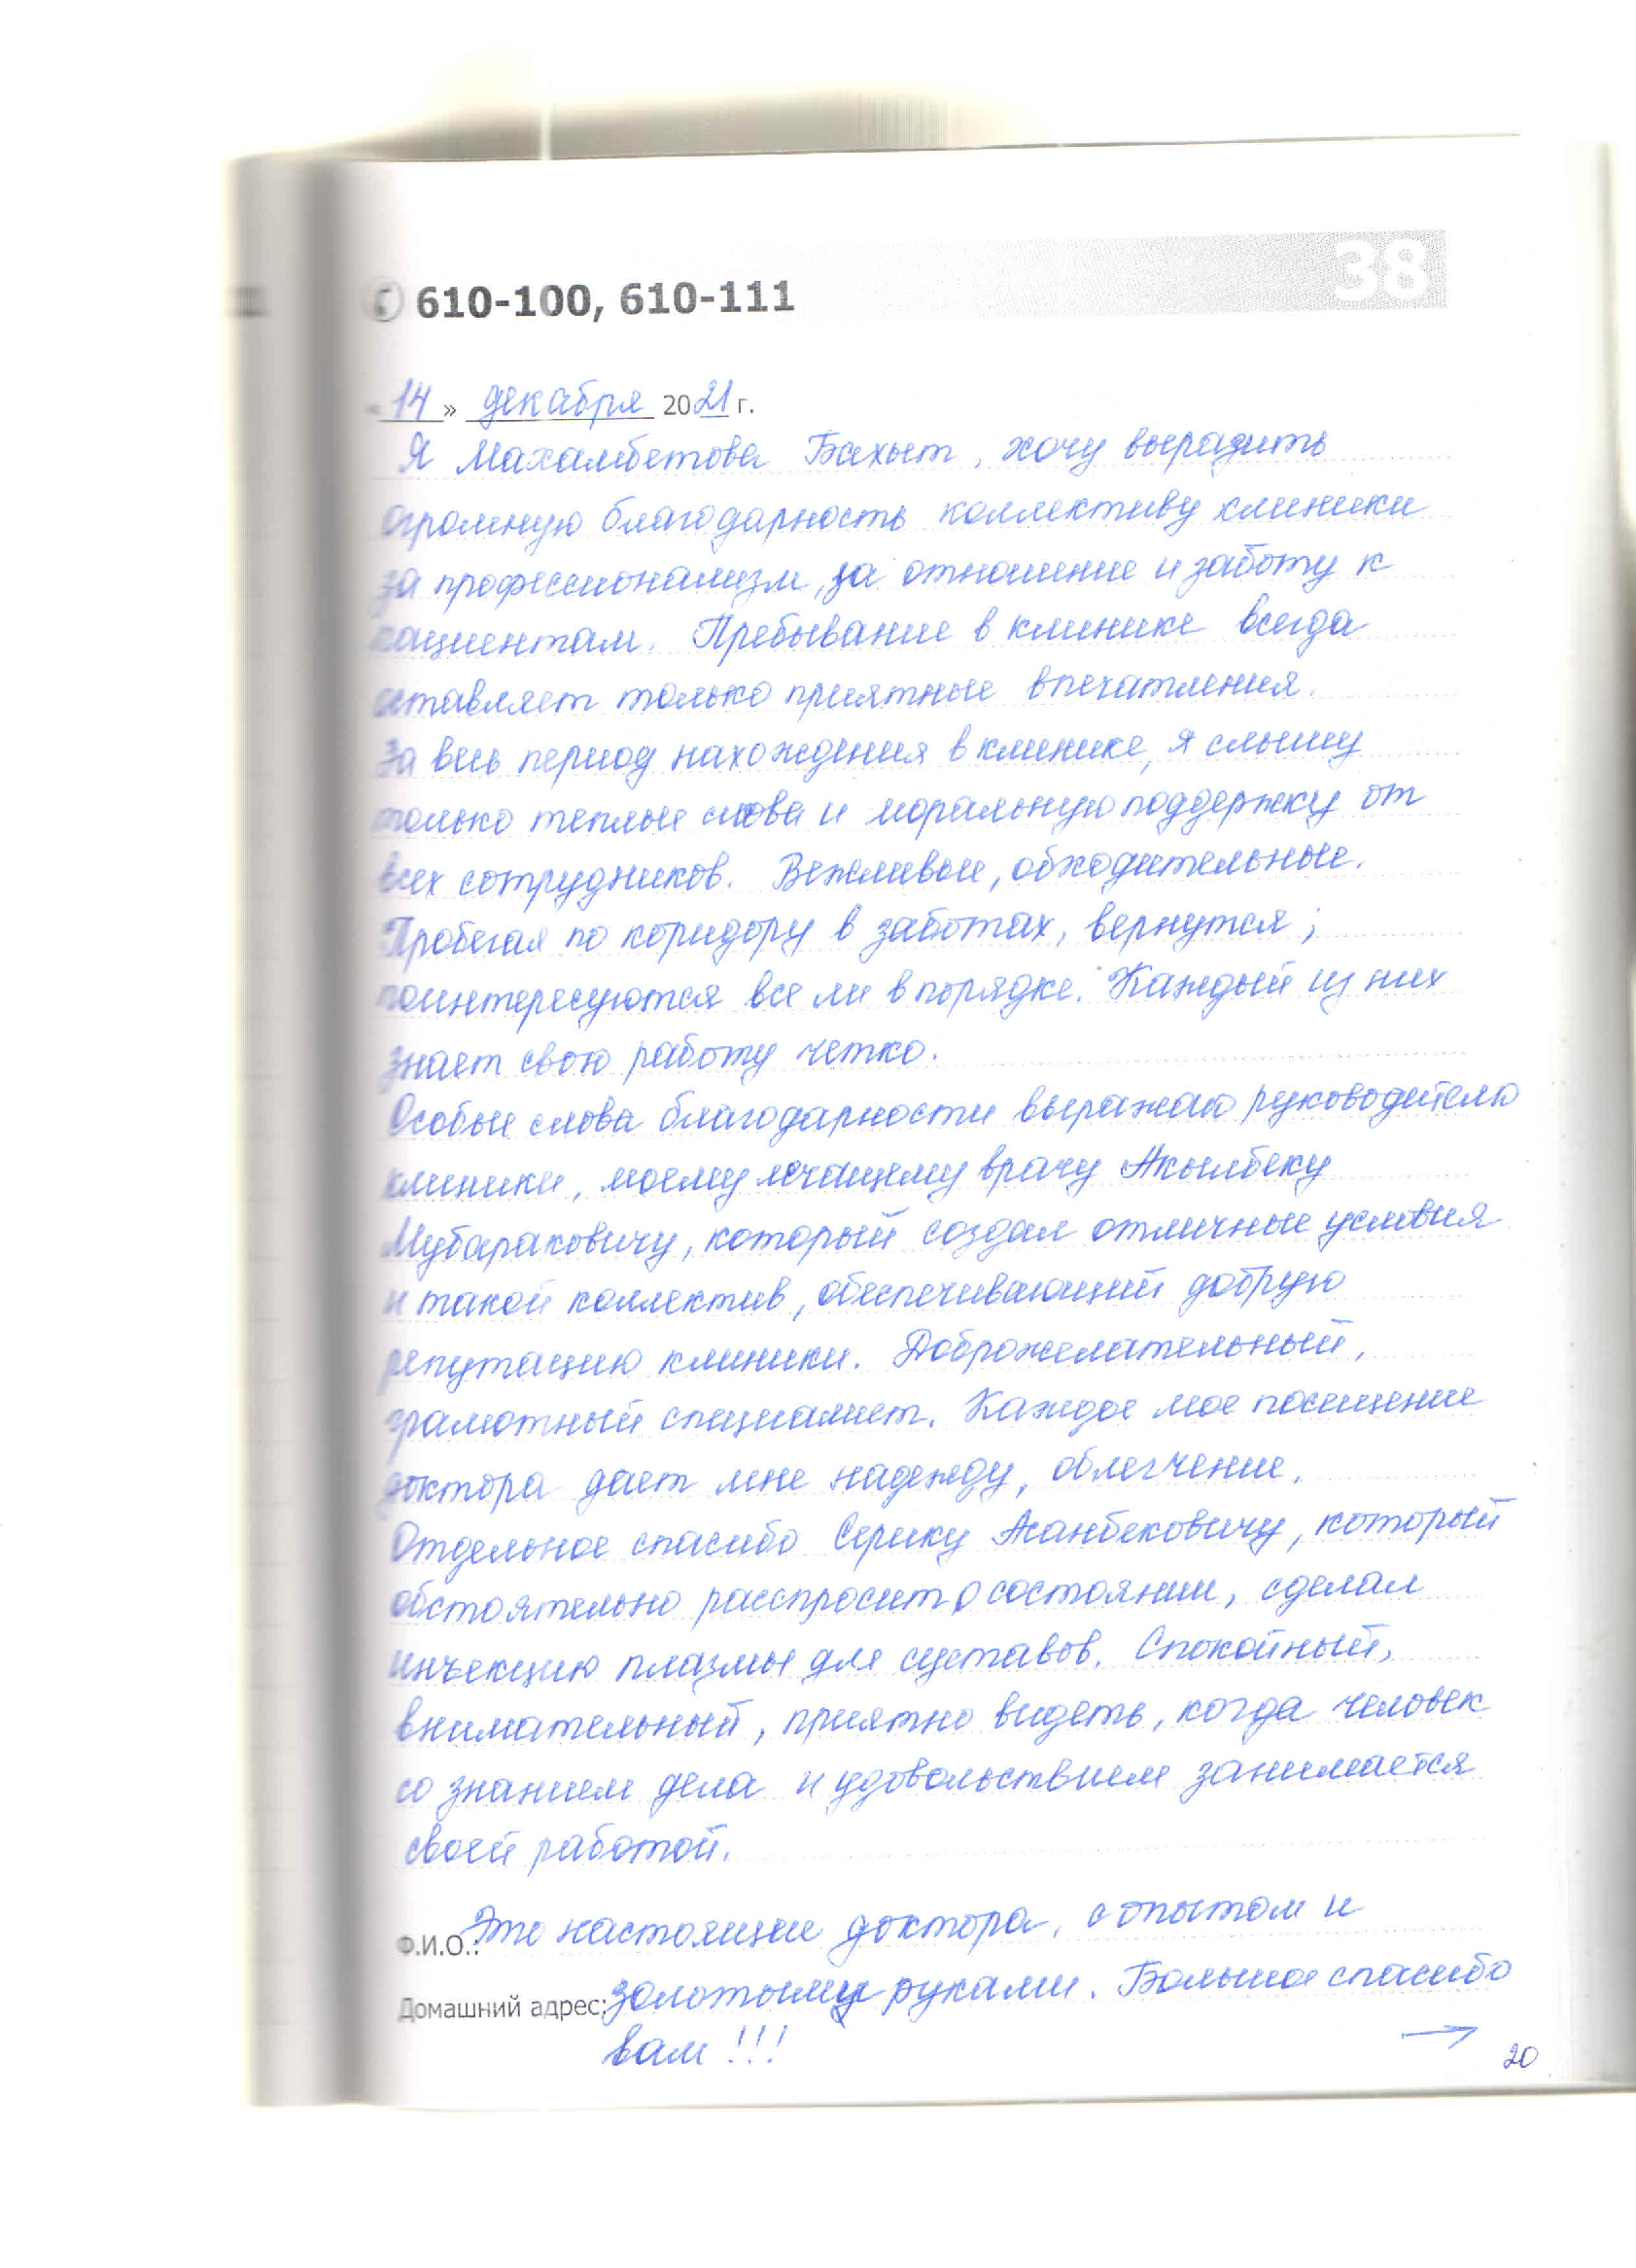 38
610-100, 610-111
«14» декабря 2021 г.
Я Махамбетова Бахыт, хочу выразить
огромную благодарность коллективу клиники
за профессионализм, за отношение и заботу к
пациентам. Пребывание в клинике всегда
оставляет только приятные впечатления.
За весь период нахождения в клинике, я слышу
только теплые слова и моральную поддержку от
всех сотрудников. Вежливые, обходительные.
Пробегая по коридору в заботах, вернутся;
поинтересуются все ли в порядке. Каждый из них
знает свою работу четко.
Особые слова благодарности выражаю руководителю
клиники, моему лечащему врачу Акылбеку
Мубараковичу, который создал отличные условия
и такой коллектив, обеспечивающий добрую
репутацию клиники. Доброжелательный,
грамотный специалист. Каждое мое посещение
доктора дает мне надежду, облегчение.
Отдельное спасибо Серику Жанбековичу, который
обстоятельно расспросит о состоянии, сделал
инъекцию плазмы для суставов. Спокойный,
внимательный, приятно видеть, когда человек
со знанием дела и удовольствием занимается
своей работой.
Ф.И.О.: Это настоящие доктора, с опытом и
Домашний адрес: золотыми руками. Большое спасибо
вам!!!
→
20